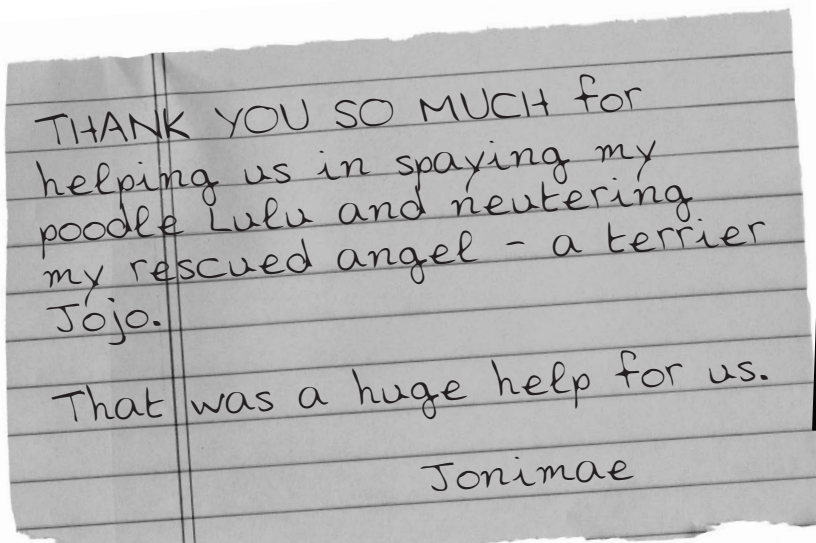 THANK YOU SO MUCH for
helping us in spaying my
poodle Lulu and neutering
my rescued angel - a terrier
Jojo.
That was a huge help for us.
Jonimae